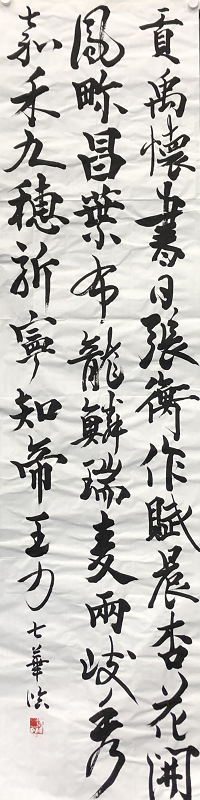 貢禹懷書日張衡作賦晨杏花開
鳳畛昌葉布龍鱗瑞麥兩岐秀
嘉禾九穗新寧知帝王力
七華臨